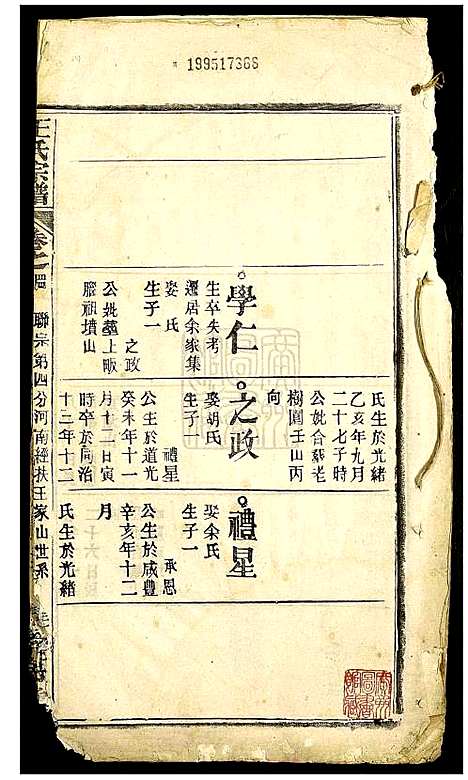 199517368
氏生於光緒
乙亥年九月
二十七子時
公妣合葬老
樹園壬山丙
向
學仁
生卒失考
遷居余家集
娶氏
生子一
之政
公妣墓上畈
腮祖墳山
之政
娶胡氏
生子一
禮星
公生於道光
癸未年十一
月十二日寅
時卒於同治
十三年十二
月
禮星
娶余氏
生子一
承恩
公生於咸豐
辛亥年十二
月
氏生於光緒
王氏宗譜
卷之
聯宗第四分河南經扶王家山世系